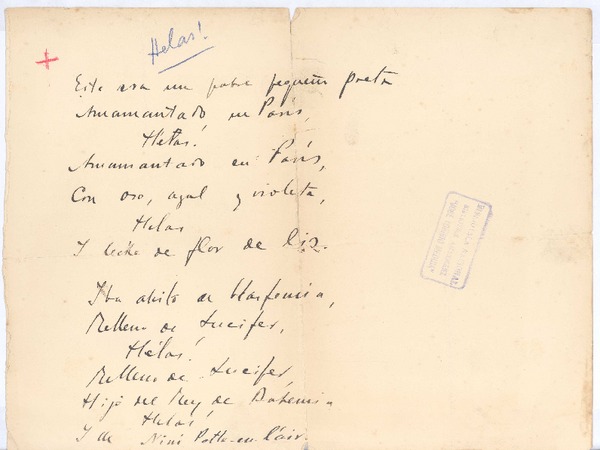 Helas!
Este era un pobre pequeño poeta
Amamantado en París,
Helas!
Amamantado en París,
Con oro, azul y violeta,
Helas
Y leche de flor de lis.
Iba ahito de blasfemia,
Relleno de Lucifer,
Hélas!
Relleno de Lucifer
Hijo del Rey de Bohemia
Helas!
Y de Nini Patte-en-l'air.